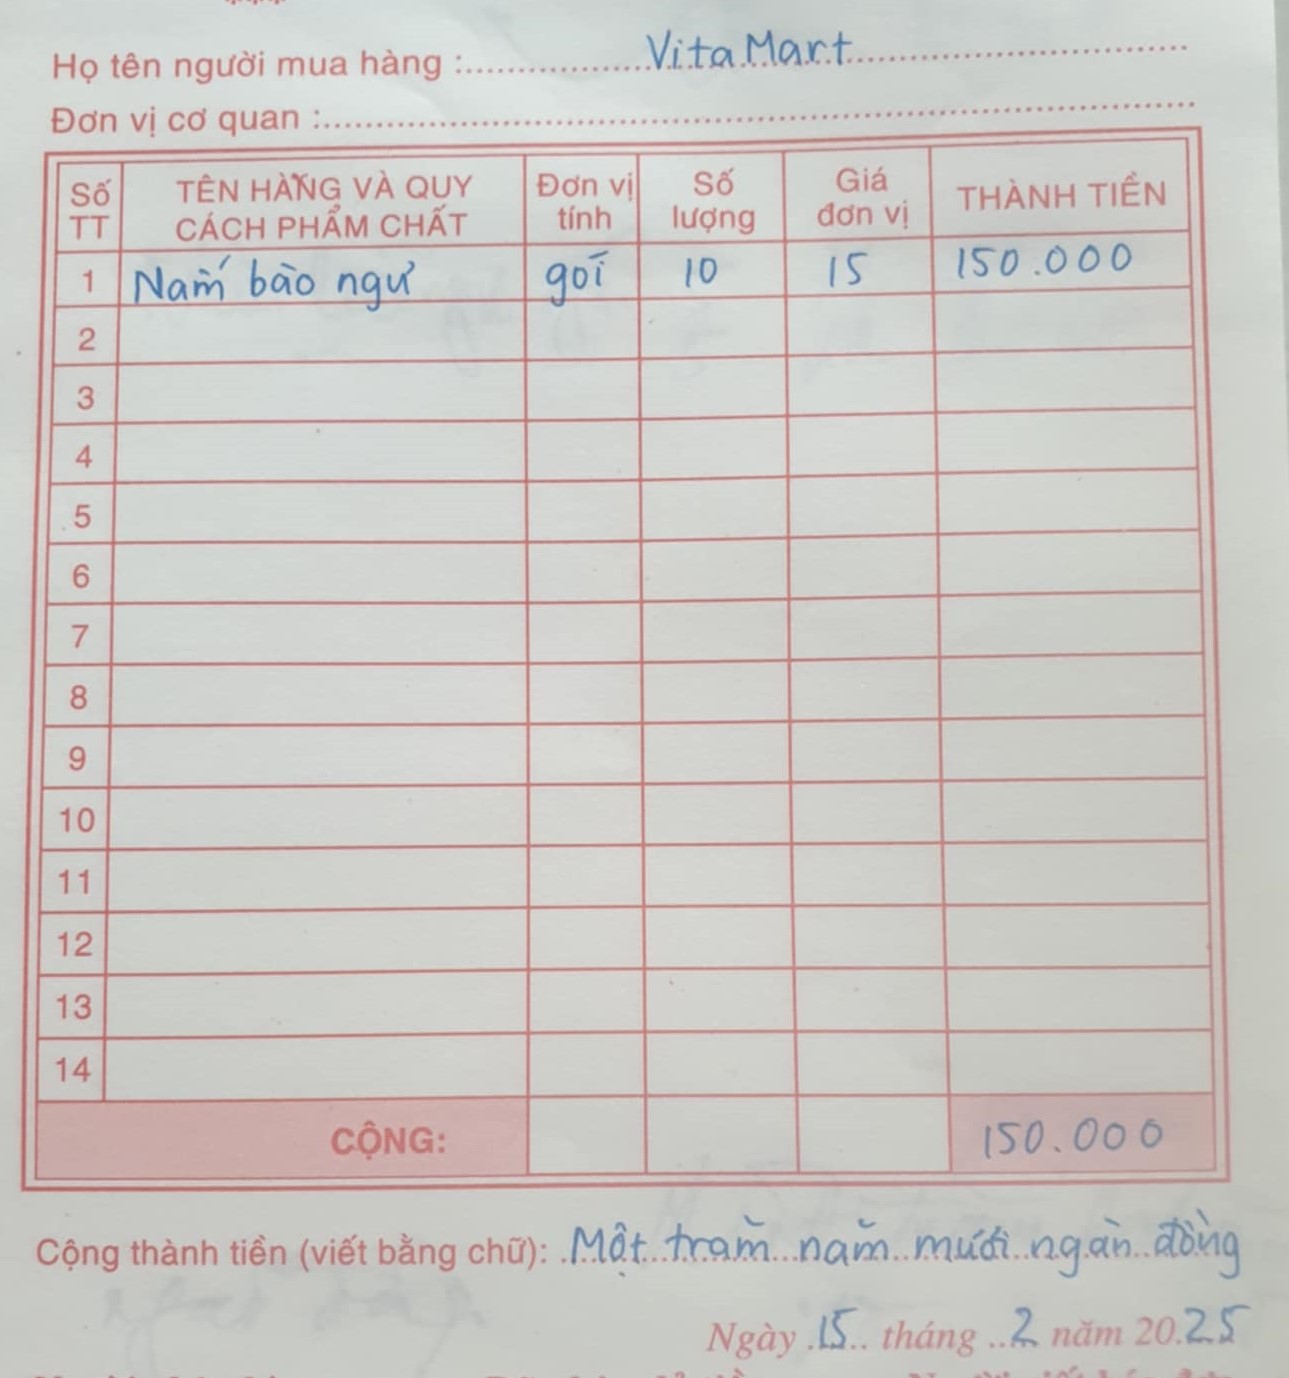 Họ tên người mua hàng : Vita Mart
Đơn vị cơ quan :
Số TT TÊN HÀNG VÀ QUY CÁCH PHẨM CHẤT Đơn vị tính Số lượng Giá đơn vị THÀNH TIỀN
1 Nấm bào ngư gói 10 15 150.000
2
3
4
5
6
7
8
9
10
11
12
13
14
CỘNG: 150.000
Cộng thành tiền (viết bằng chữ): Một trăm năm mươi ngàn đồng
Ngày 15 tháng 2 năm 2025